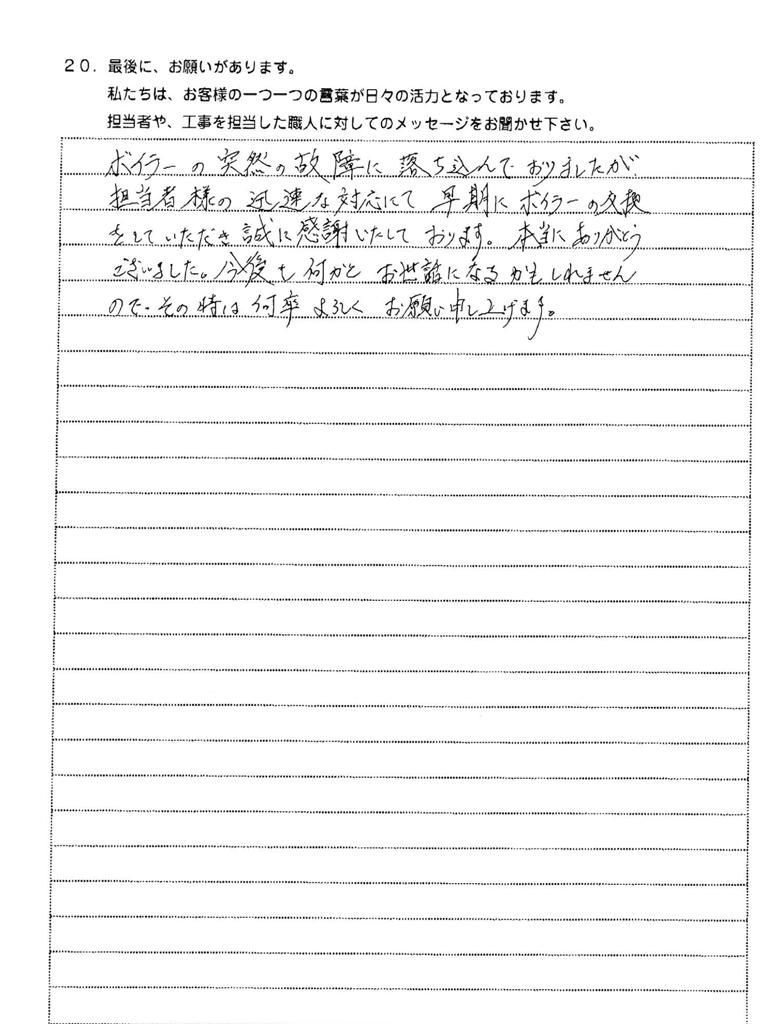 20．最後に、お願いがあります。
私たちは、お客様の一つ一つの言葉が日々の活力となっております。
担当者や、工事を担当した職人に対してのメッセージをお聞かせ下さい。
ボイラーの突然の故障に落ち込んでおりましたが
担当者様の迅速な対応にて早期にボイラーの交換
をしていただき誠に感謝いたしております。本当にありがとう
ございました。今後も何かとお世話になるかもしれません
ので、その時は何卒よろしくお願い申し上げます。